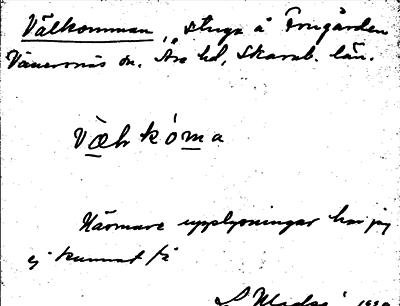 Välkomman, "stuga å Frugården
Vänersnäs sn. Åse hd, Skarab. län.
Væl kóma
Närmare upplysningar har jag
ej kunnat få